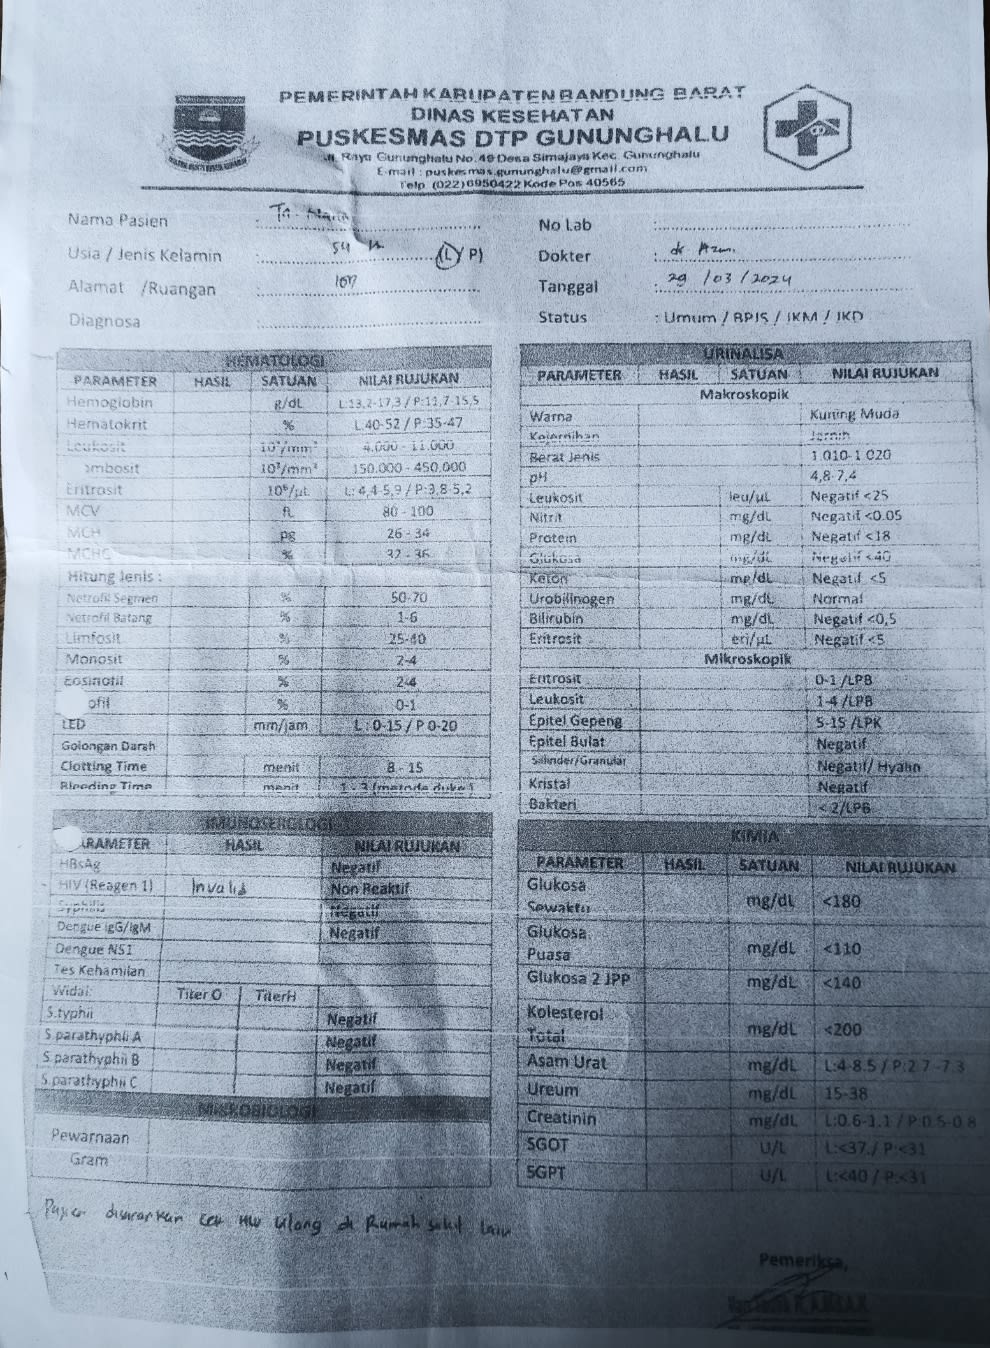 PEMERINTAH KABUPATEN BANDUNG BARAT
DINAS KESEHATAN
PUSKESMAS DTP GUNUNGHALU
Jl. Raya Gununghalu No.49 Desa Sirnajaya Kec. Gununghalu
E-mail : puskesmas.gununghalu@gmail.com
Telp. (022)6950422 Kode Pos 40565
Nama Pasien : Tn.
Usia / Jenis Kelamin : 54 (L / P)
Alamat /Ruangan :
Diagnosa :
No Lab :
Dokter : dr
Tanggal : 29 /03 / 2024
Status : Umum / BPJS / JKM / JKD
HEMATOLOGI
PARAMETER HASIL SATUAN NILAI RUJUKAN
Hemoglobin g/dL L:13,2-17,3 / P:11,7-15,5
Hematokrit % L:40-52 / P:35-47
Leukosit 10³/mm³ 4.000 - 11.000
ombosit 10³/mm³ 150.000 - 450.000
Eritrosit 10⁶/µL L: 4,4-5,9 / P:3,8-5,2
MCV fL 80 - 100
MCH pg 26 - 34
MCHC % 32 - 36
Hitung Jenis :
Netrofil Segmen % 50-70
Netrofil Batang % 1-6
Limfosit % 25-40
Monosit % 2-4
Eosinofil % 2-4
ofil % 0-1
LED mm/jam L : 0-15 / P 0-20
Golongan Darah
Clotting Time menit 8 - 15
Bleeding Time menit 1 - 3 (metode duke)
IMUNOSEROLOGI
ARAMETER HASIL NILAI RUJUKAN
HBsAg Negatif
HIV (Reagen 1) Invalid Non Reaktif
Syphilis Negatif
Dengue IgG/IgM Negatif
Dengue NS1
Tes Kehamilan
Widal: Titer O Titer H
S.typhii Negatif
S parathyphii A Negatif
S parathyphii B Negatif
S parathyphii C Negatif
MIKROBIOLOGI
Pewarnaan
Gram
URINALISA
PARAMETER HASIL SATUAN NILAI RUJUKAN
Makroskopik
Warna Kuning Muda
Kejernihan Jernih
Berat Jenis 1.010-1.020
pH 4,8-7,4
Leukosit leu/µL Negatif <25
Nitrit mg/dL Negatif <0.05
Protein mg/dL Negatif <18
Glukosa mg/dL Negatif <40
Keton mg/dL Negatif <5
Urobilinogen mg/dL Normal
Bilirubin mg/dL Negatif <0,5
Eritrosit eri/µL Negatif <5
Mikroskopik
Eritrosit 0-1 /LPB
Leukosit 1-4 /LPB
Epitel Gepeng 5-15 /LPK
Epitel Bulat Negatif
Silinder/Granular Negatif/ Hyalin
Kristal Negatif
Bakteri < 2/LPB
KIMIA
PARAMETER HASIL SATUAN NILAI RUJUKAN
Glukosa
Sewaktu mg/dL <180
Glukosa
Puasa mg/dL <110
Glukosa 2 JPP mg/dL <140
Kolesterol
Total mg/dL <200
Asam Urat mg/dL L:4-8.5 / P:2.7 -7.3
Ureum mg/dL 15-38
Creatinin mg/dL L:0.6-1.1 / P:0.5-0.8
SGOT U/L L:<37 / P:<31
SGPT U/L L:<40 / P:<31
Pasien disarankan cek HIV ulang di Rumah sakit lain
Pemeriksa,